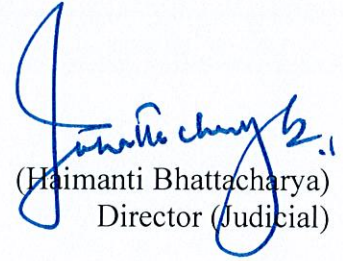 (Haimanti Bhattacharya)
Director (Judicial)